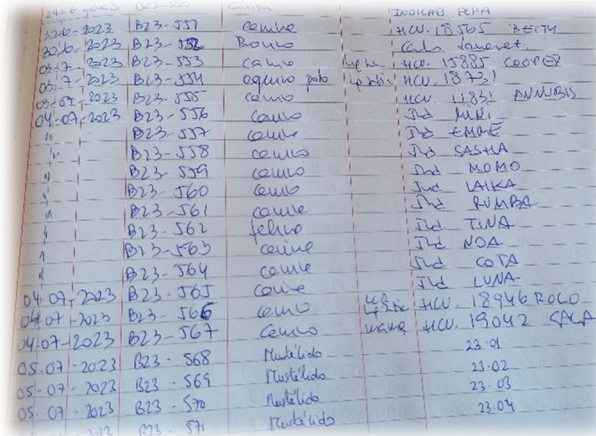 INDICAR PEPA
30-6-2023 B23-551 canine HCU. 18565 BEITY
30/6-2023 B23-552 Bovino
03-7-2023 B23-553 canino HCU. 15885 COOPER
03-7-2023 B23-554 equino HCU. 18731
03-07-2023 B23-555 canino HCU. ANNUBIS
04-07-2023 B23-556 canino Ind
" B23-557 canino Ind
" B23-558 canino Ind SASHA
" B23-559 canino Ind MOMO
" B23-560 canino Ind LAIKA
" B23-561 canine Ind RUMBA
" B23-562 felino Ind TINA
" B23-563 canine Ind NOA
" B23-564 canine Ind COTA
04-07-2023 B23-565 canine Ind LUNA
04-07-2023 B23-566 canino HCU. 18946 ROCO
04-07-2023 B23-567 canino HCU. 19042
05-07-2023 B23-568 Mustélido 23.01
05-07-2023 B23-569 Mustélido 23.02
05-07-2023 B23-570 Mustélido 23.03
B23-571 Mustélido 23.04